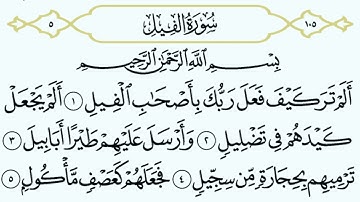 ١٠٥ سُورَةُ الْفِيلِ ٥
بِسْمِ اللَّهِ الرَّحْمَٰنِ الرَّحِيمِ
أَلَمْ تَرَ كَيْفَ فَعَلَ رَبُّكَ بِأَصْحَابِ الْفِيلِ ١ أَلَمْ يَجْعَلْ
كَيْدَهُمْ فِي تَضْلِيلٍ ٢ وَأَرْسَلَ عَلَيْهِمْ طَيْرًا أَبَابِيلَ ٣
تَرْمِيهِم بِحِجَارَةٍ مِّن سِجِّيلٍ ٤ فَجَعَلَهُمْ كَعَصْفٍ مَّأْكُولٍ ٥